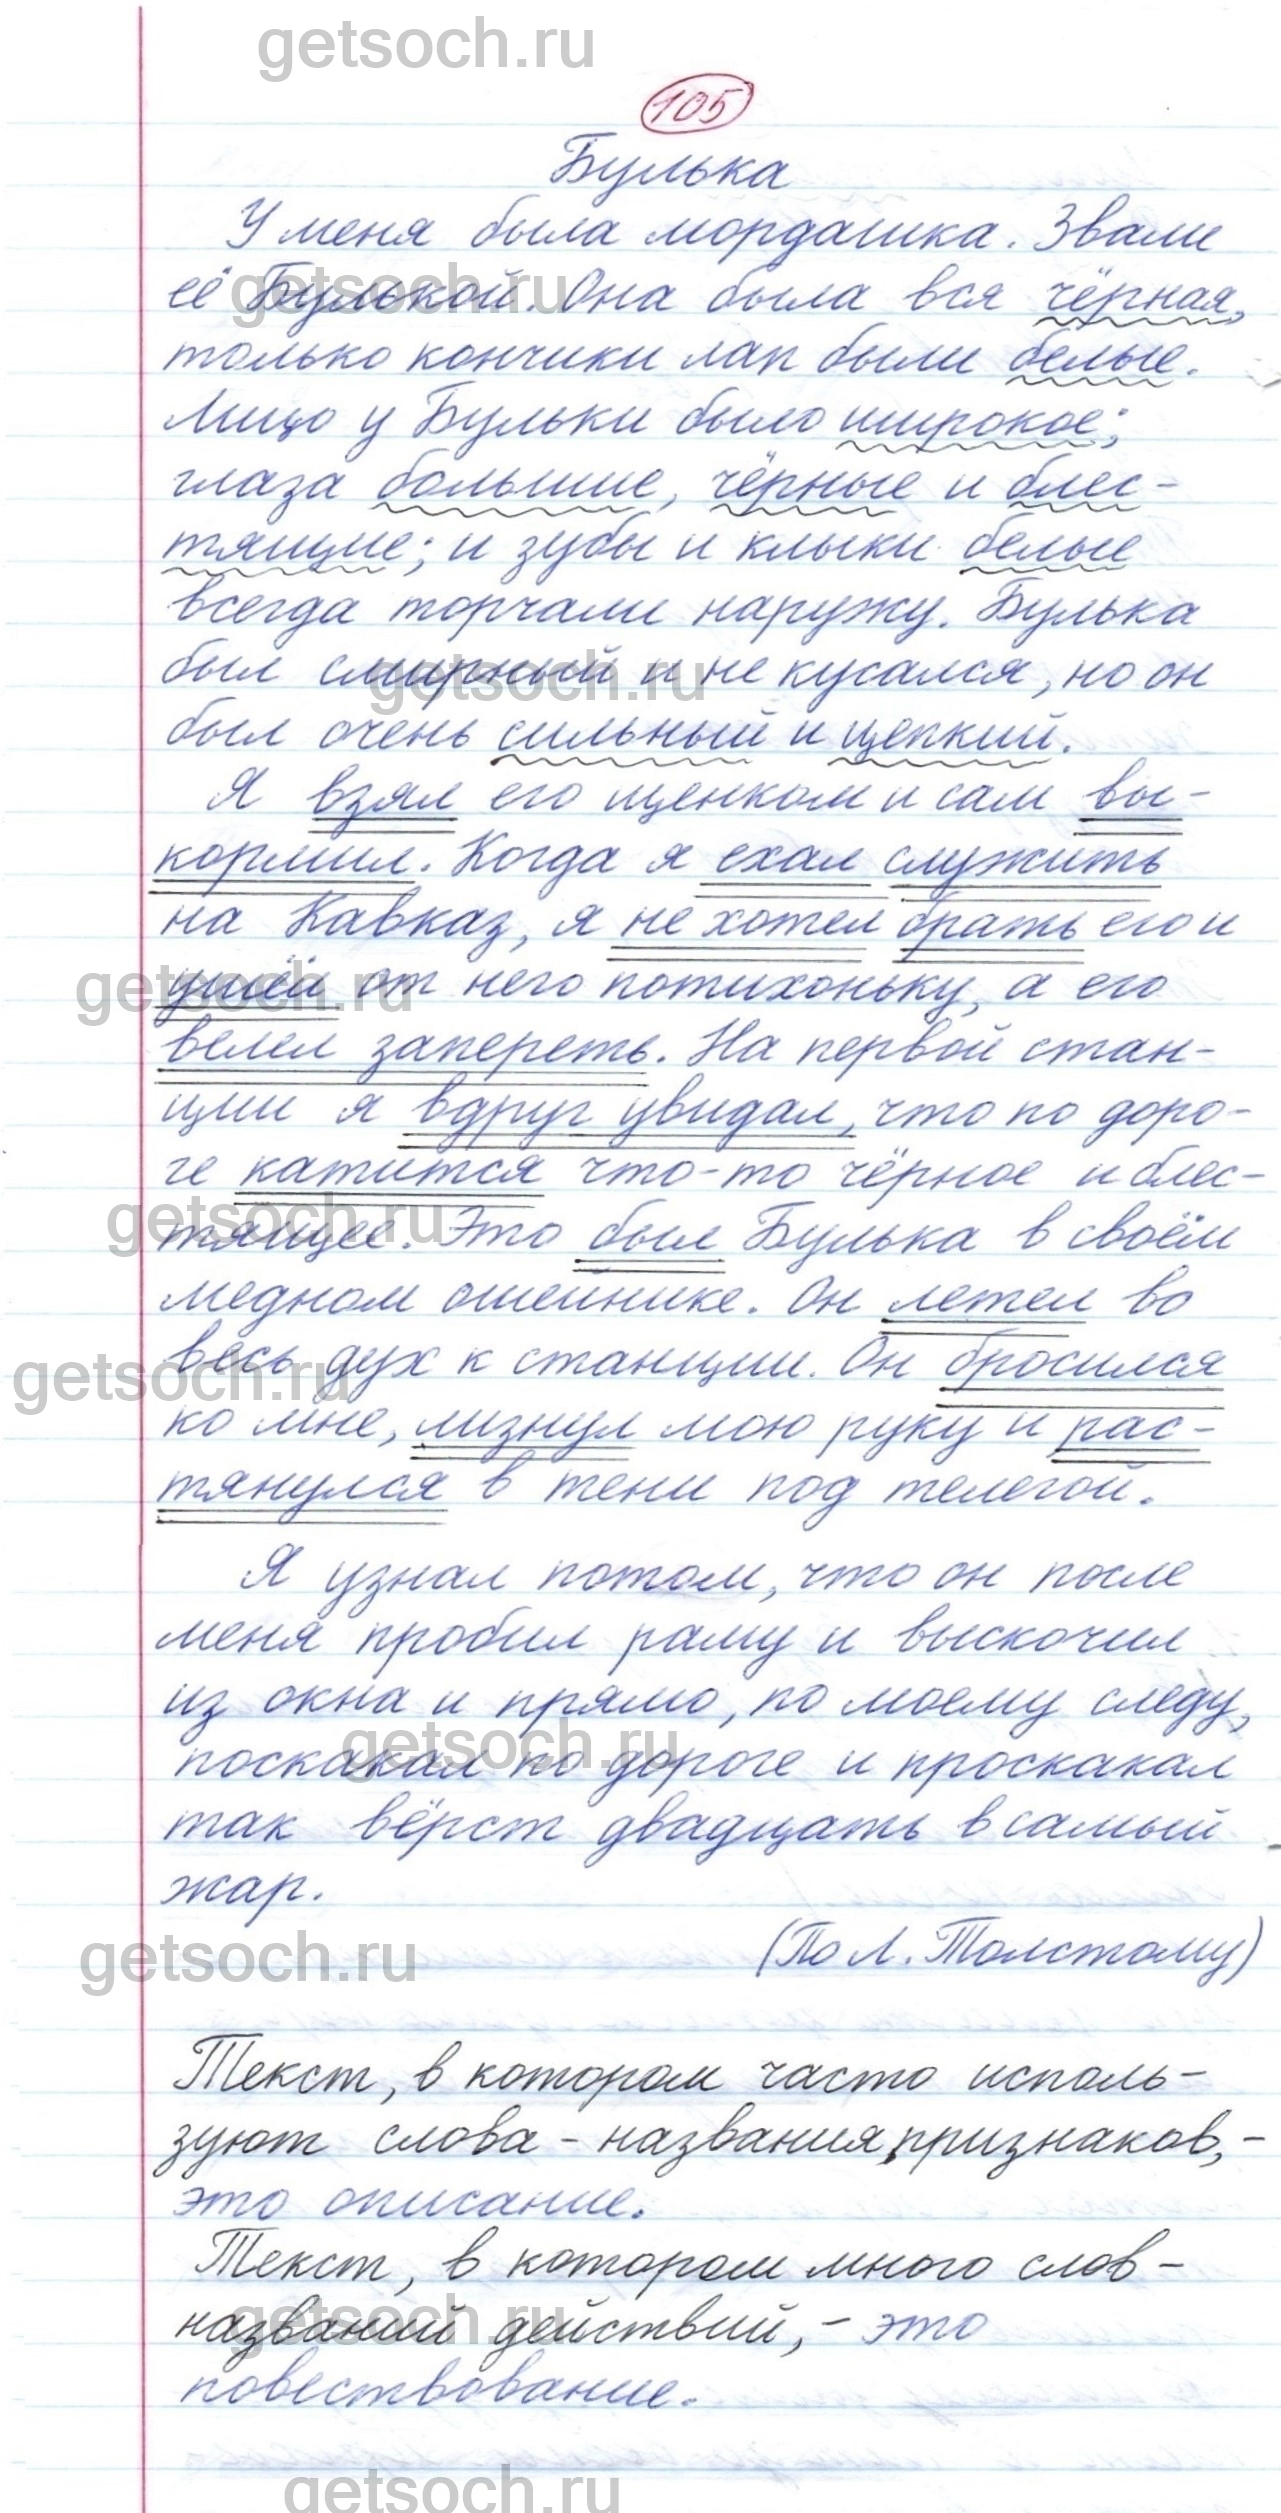 getsoch.ru
105
Булька
У меня была мордашка. Звали
её Булькой. Она была вся чёрная,
getsoch.ru
только кончики лап были белые.
Лицо у Бульки было широкое;
глаза большие, чёрные и блес-
тящие; и зубы и клыки белые
всегда торчали наружу. Булька
был смирный и не кусался, но он
getsoch.ru
был очень сильный и цепкий.
Я взял его щенком и сам вы-
кормил. Когда я ехал служить
на Кавказ, я не хотел брать его и
ушёл от него потихоньку, а его
getsoch.ru
велел запереть. На первой стан-
ции я вдруг увидал, что по доро-
ге катится что-то чёрное и блес-
getsoch.ru
тящее. Это был Булька в своём
медном ошейнике. Он летел во
весь дух к станции. Он бросился
getsoch.ru
ко мне, лизнул мою руку и рас-
тянулся в тени под телегой.
Я узнал потом, что он после
меня пробил раму и выскочил
из окна и прямо, по моему следу,
getsoch.ru
поскакал по дороге и проскакал
так вёрст двадцать в самый
жар.
(По Л. Толстому)
getsoch.ru
Текст, в котором часто исполь-
зуют слова - названия признаков, -
это описание.
Текст, в котором много слов -
названий действий, - это
getsoch.ru
повествование.
getsoch.ru